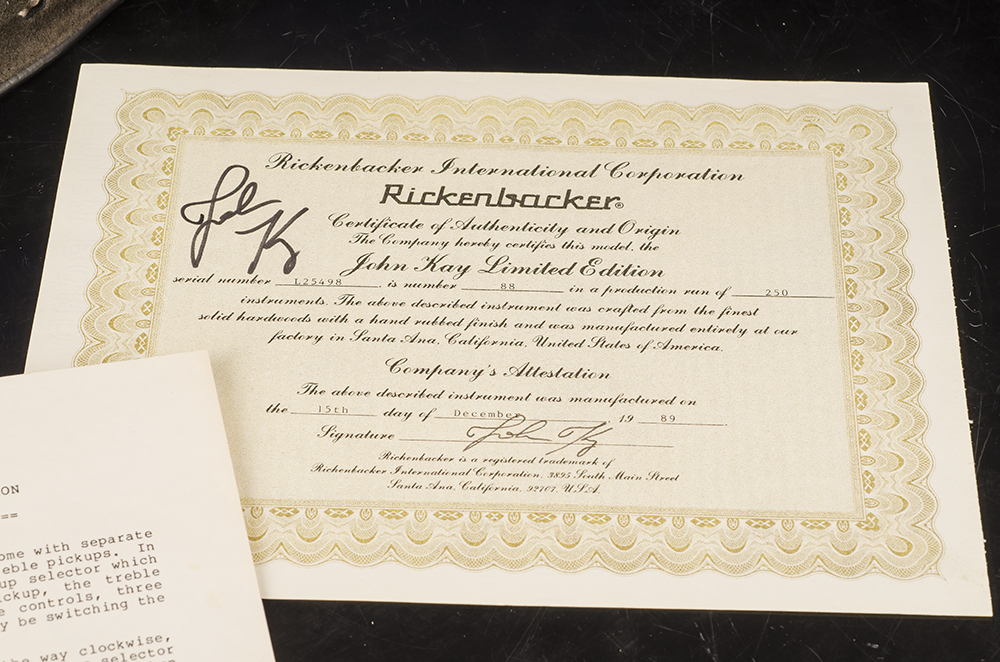 Rickenbacker International Corporation
Rickenbacker®
Certificate of Authenticity and Origin
The Company hereby certifies this model, the
John Kay Limited Edition
John Kay
serial number L25498 is number 88 in a production run of 250
instruments. The above described instrument was crafted from the finest
solid hardwoods with a hand rubbed finish and was manufactured entirely at our
factory in Santa Ana, California, United States of America.
Company's Attestation
The above described instrument was manufactured on
the 15th day of December 19 89
Signature John Kay
Rickenbacker is a registered trademark of
Rickenbacker International Corporation, 3895 South Main Street
Santa Ana, California, 92707, U.S.A.
ON
==
ome with separate
eble pickups. In
up selector which
ickup, the treble
e controls, three
y be switching the
he way clockwise,
selector